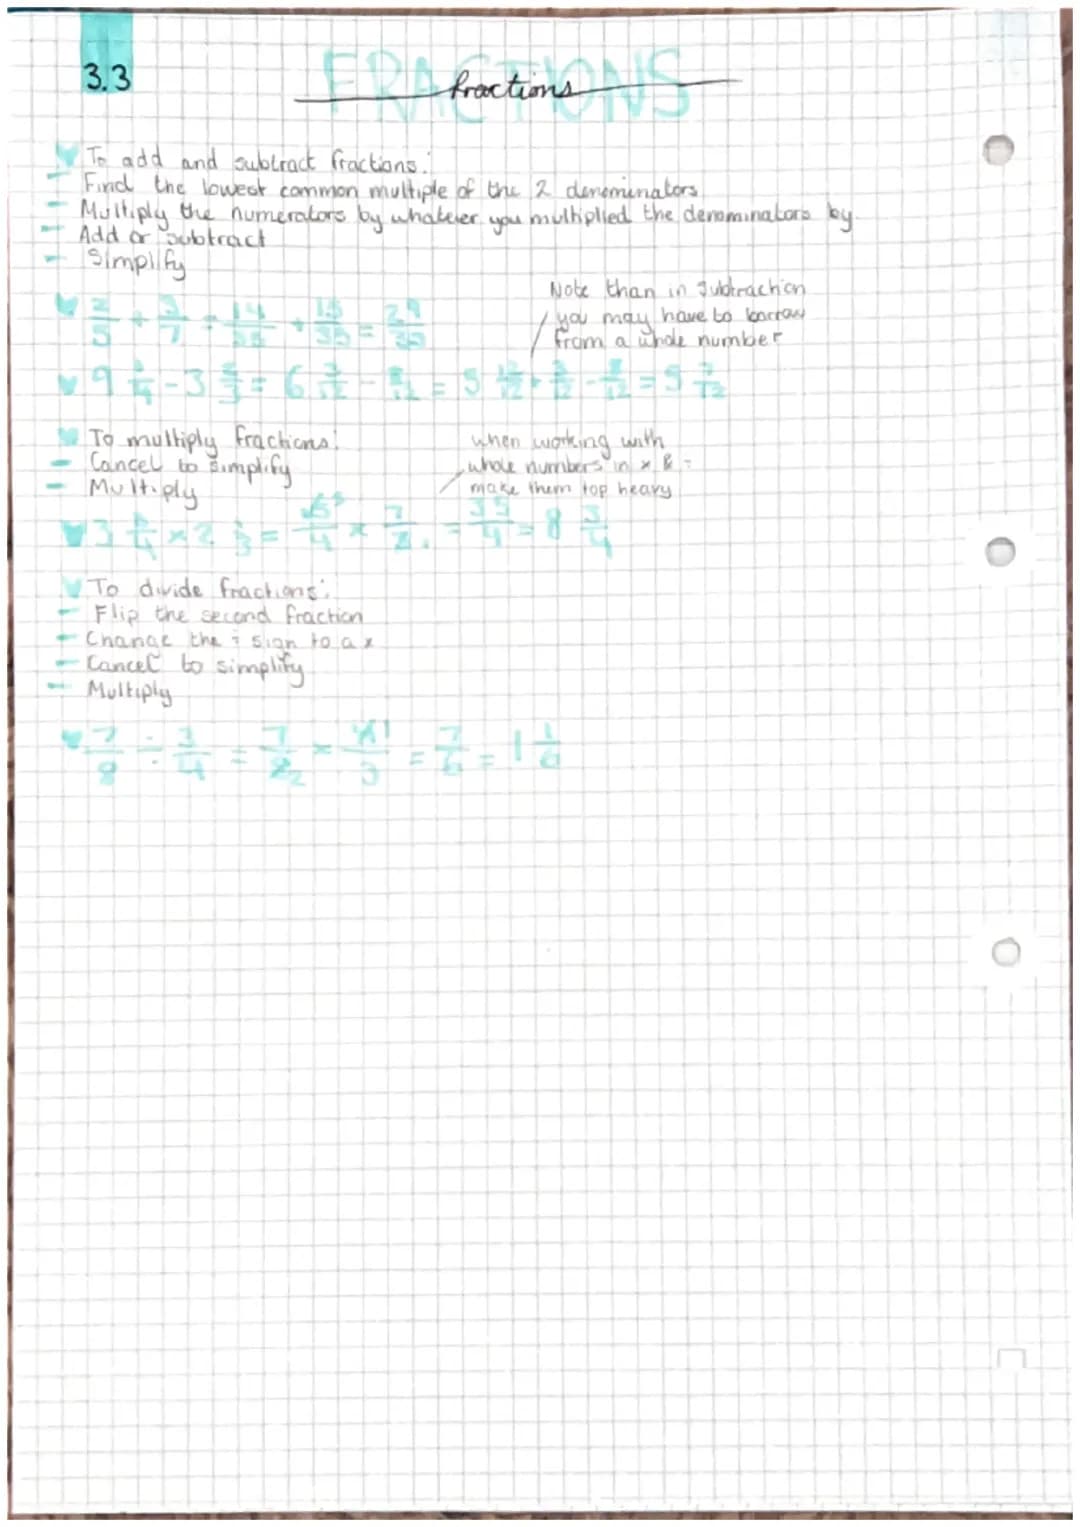 3.3
FRACTIONS
fractions
To add and subtract fractions:
- Find the lowest common multiple of the 2 denominators
- Multiply the numerators by whatever you multiplied the denominators by.
- Add or subtract
- Simplify
Note than in subtraction
you may have to borrow
from a whole number
2/5 + 3/7 = 14/35 + 15/35 = 29/35
9 1/4 - 3 2/3 = 6 3/12 - 8/12 = 5 12/12 + 3/12 - 8/12 = 5 7/12
To multiply fractions:
- Cancel to simplify
- Multiply
when working with
whole numbers in × & ÷
make them top heavy
= 35/4 = 8 3/4
To divide fractions:
- Flip the second fraction
- Change the ÷ sign to a ×
- Cancel to simplify
- Multiply
7/8 ÷ 3/4 = 7/8 2 × 4 1/3 = 7/6 = 1 1/6